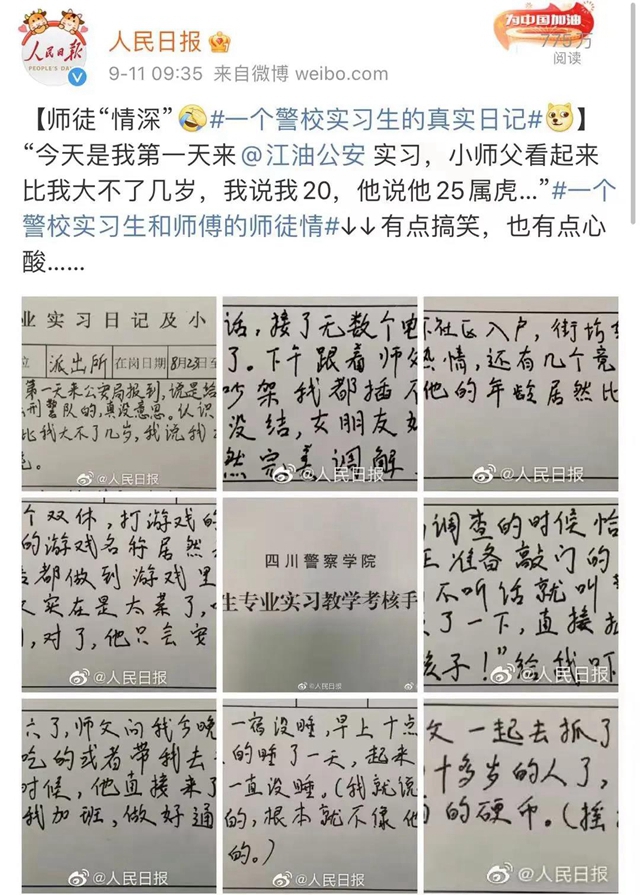 人民日报
PEOPLE'S DA
人民日报
为中国加油
9-11 09:35 来自微博 weibo.com
775万
阅读
【师徒“情深”🤣#一个警校实习生的真实日记#】
“今天是我第一天来@江油公安 实习，小师父看起来
比我大不了几岁，我说我20，他说他25属虎…”#一个
警校实习生和师傅的师徒情#↓↓有点搞笑，也有点心
酸……
业实习日记及小
派出所 在岗日期 8月23日至
第一天来公安局报到，说是给
刑警队的，真没意思。认识
比我大不了几岁，我说我
@人民日报
话，接了无数个电
了。下午跟着师父
吵架我都插不
没结，女朋友如
然完美调解
@人民日报
社区入户，街坊
热情，还有几个竟
他的年龄居然比
@人民日报
个双休，打游戏的
的游戏名称居然
都做到游戏里
实在是太菜了，
，对了，他只会安
@人民日报
四川警察学院
生专业实习教学考核手
@人民日报
调查的时候恰
正准备敲门的
不听话就叫
了一下，直接
孩子！”给我吓
@人民日报
六了，师父问我今晚
吃的或者带我去
时候，他直接来了
我加班，做好通
@人民日报
一宿没睡，早上十点
的睡了一天，起来
一直没睡。（我就说
的，根本就不像他
的。）
@人民日报
父一起去抓了
十多岁的人了，
的硬币。（摇
@人民日报